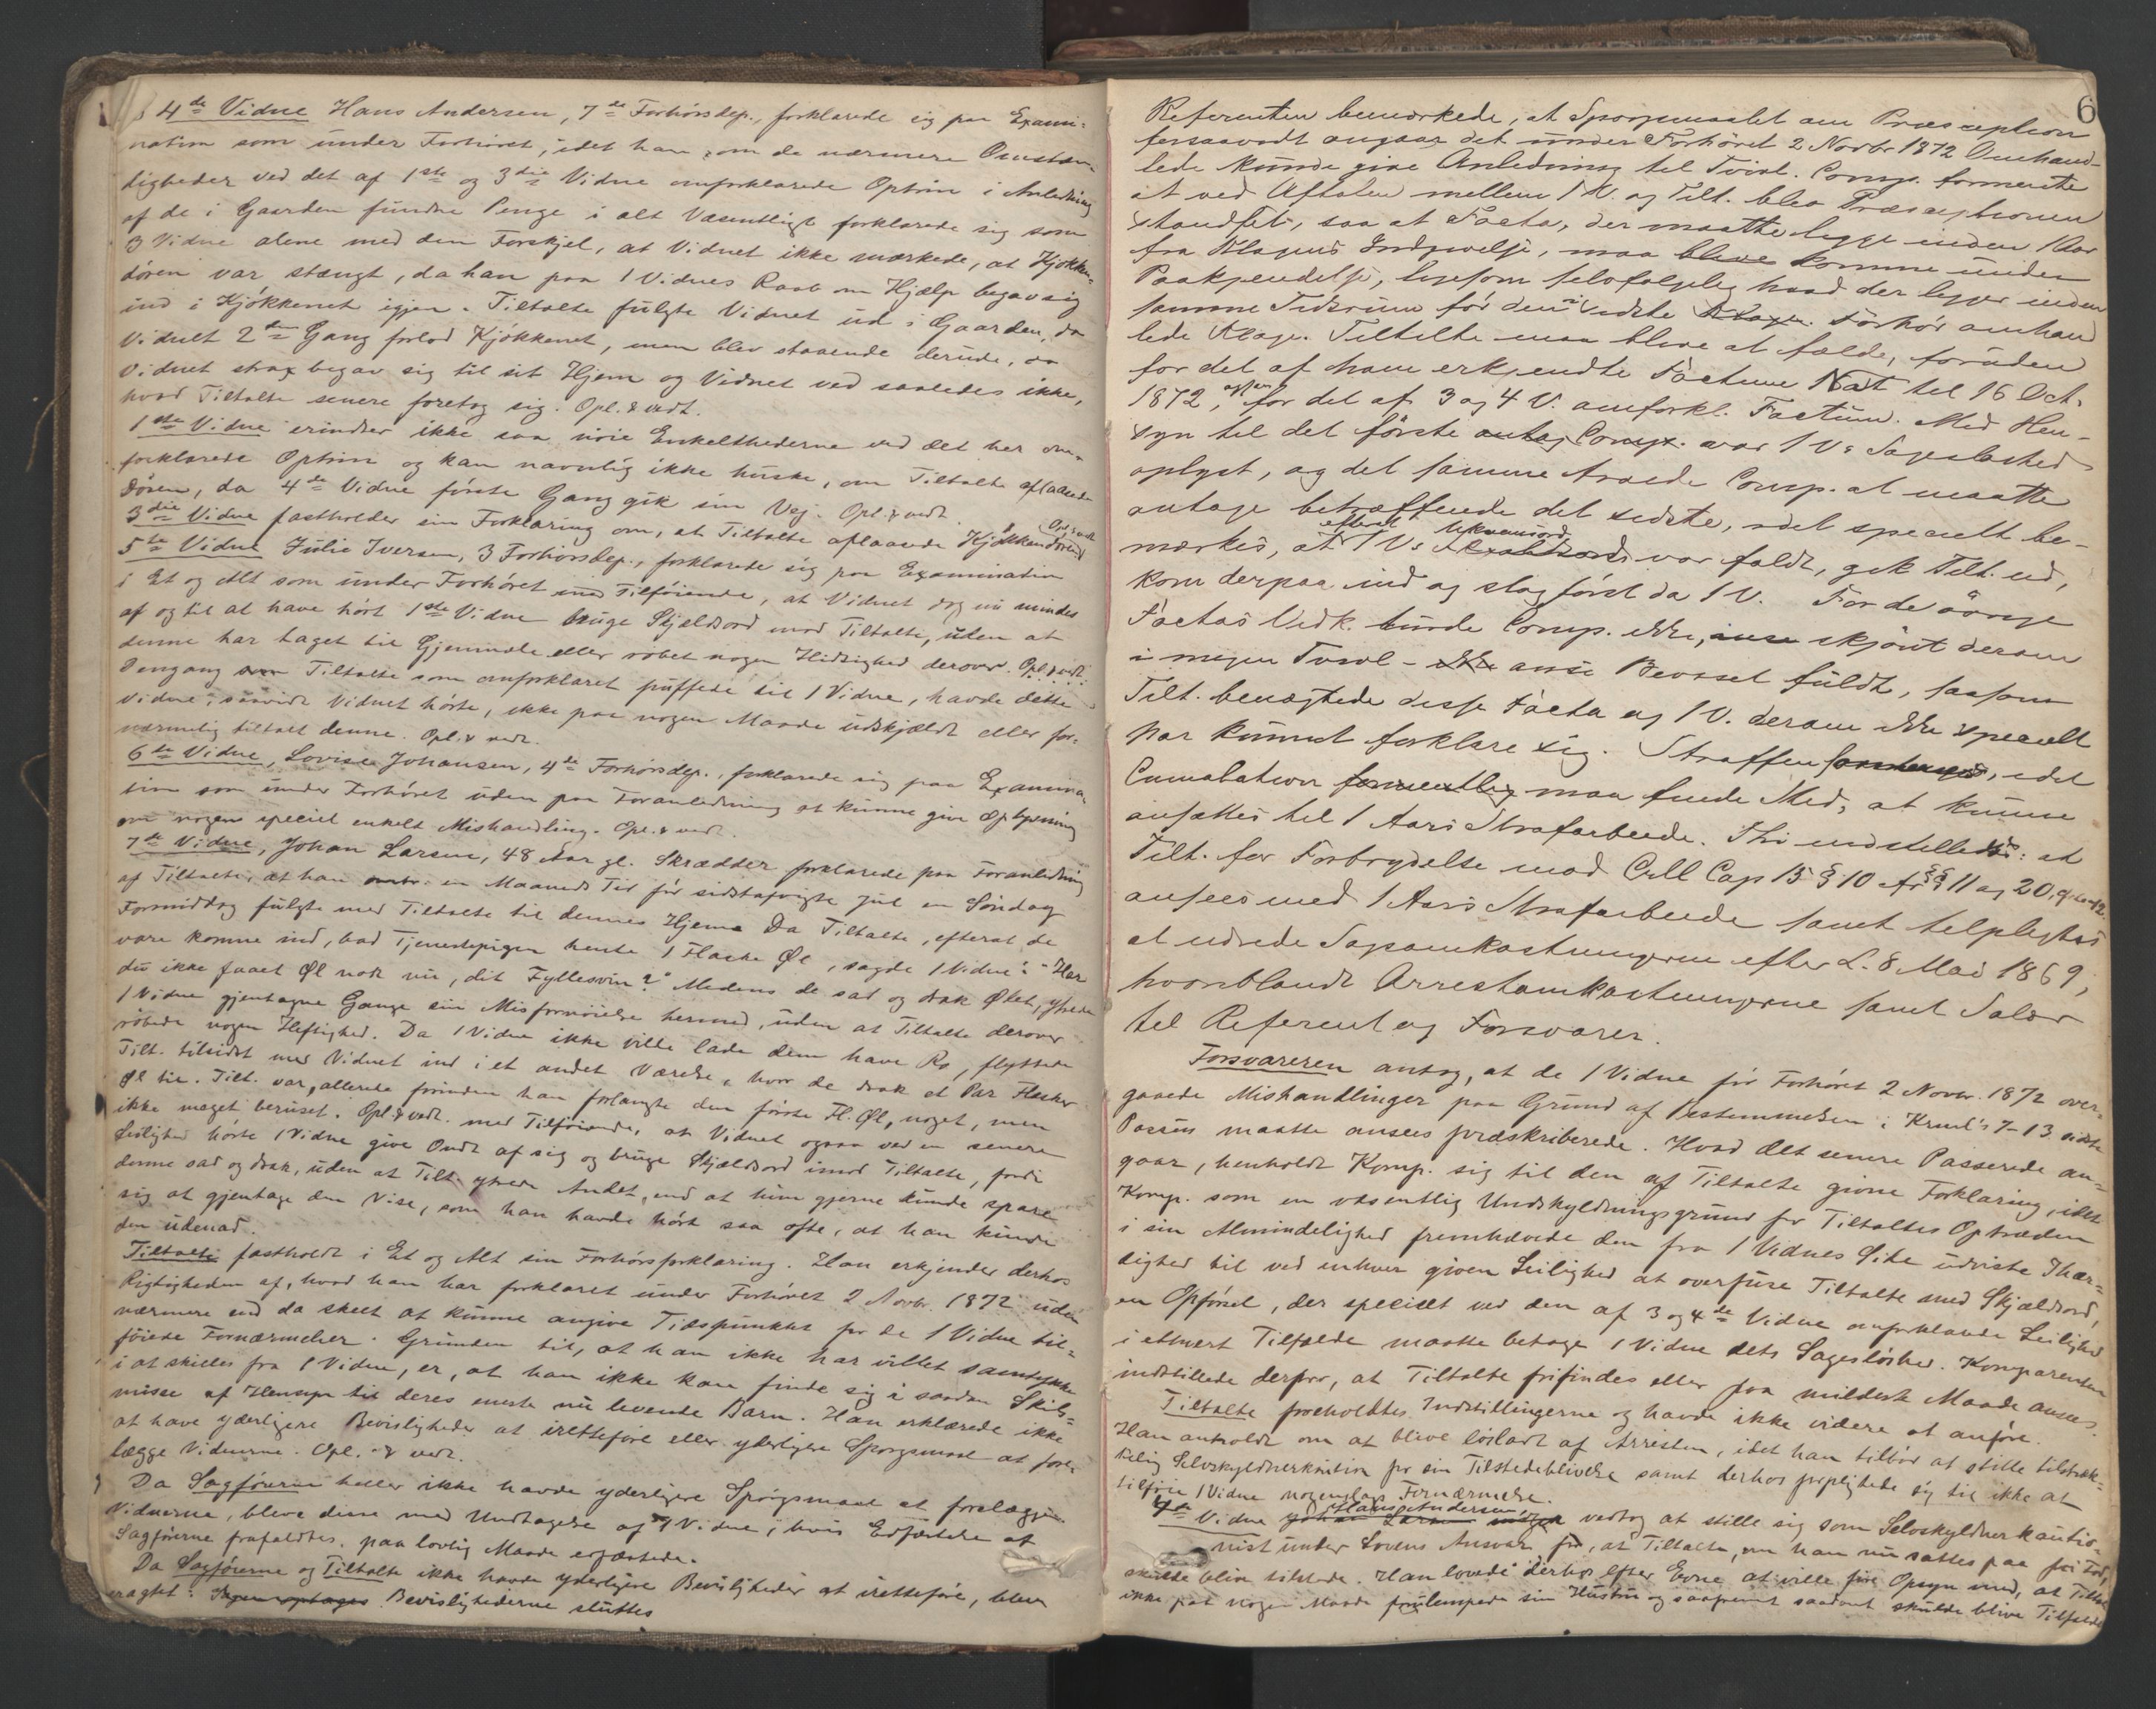 4de Vidne Hans Andersen, 7de Forhørsdep., forklarede sig paa Exami-
nation som under Forhøret, idet han om de nærmere Omstæn-
digheder ved det af 1ste og 3die Vidne omforklarede Optrin i Anledning
af de i Gaarden fundne Penge i alt Væsentligt forklarede sig som
3 Vidne alene med den Forskjel, at Vidnet ikke mærkede, at Kjøkken-
døren var stængt, da han paa 1 Vidnes Raab om Hjælp begav sig
ind i Kjøkkenet igjen. Tiltalte fulgte Vidnet ud i Gaarden, da
Vidnet 2den Gang forlod Kjøkkenet, men blev staaende derude, da
Vidnet strax begav sig til sit Hjem og Vidnet ved saaledes ikke,
hvad Tiltalte senere foretog sig. Opl. & vedt.
1ste Vidne erindrer ikke saa nøie Enkelthederne ved det her om-
forklarede Optrin og kan navnlig ikke huske, om Tiltalte aflaasede
Døren, da 4de Vidne første Gang gik sin Vej. Opl. & vedt.
3die Vidne fastholder sin Forklaring om, at Tiltalte aflaasede Kjøkkendøren Opl. & vedt
5te Vidne Julie Iversen, 3 Forhørsdep., forklarede sig paa Examination
i Et og Alt som under Forhøret med Tilføiende, at Vidnet dog nu mindes
af og til at have hørt 1ste Vidne bruge Skjeldsord mod Tiltalte, uden at
denne har taget til Gjenmæle eller røbet nogen Hidsighed derover. Opl. & vedt.
Dengang Tiltalte som omforklaret puffede til 1 Vidne, havde dette
Vidne, saavidt Vidnet hørte, ikke paa nogen Maade udskjældt eller for-
nærmelig tiltalt denne. Opl. & vedt.
6te Vidne, Lovise Johansen, 4de Forhørsdep., forklarede sig paa Examina-
tion som under Forhøret uden paa Foranledning at kunne give Oplysning
om nogen speciel enkelt Mishandling. Opl. & vedt.
7de Vidne, Johan Larsen, 48 Aar gl. Skrædder forklarede paa Foranledning
af Tiltalte, at han en Maaneds Tid før sidstafvigte Jul en Søndag
Formiddag fulgte med Tiltalte til dennes Hjem. Da Tiltalte, efterat de
vare komne ind, bad Tjenestepigen hente 1 Flaske Øl, sagde 1 Vidne: "Har
du ikke faaet Øl nok nu, dit Fyllesvin?" Medens de sad og drak Øllet, ytrede
1 Vidne gjentagne Gange sin Misfornøielse hermed, uden at Tiltalte derover
røbede nogen Heftighed. Da 1 Vidne ikke ville lade dem have Ro, flyttede
Tilt. tilsidst med Vidnet ind i et andet Værelse, hvor de drak et Par Flasker
Øl til. Tilt. var, allerede forinden han forlangte den første Fl. Øl, noget, men
ikke meget beruset. Opl. & vedt. med Tilføiende, at Vidnet ogsaa ved en senere
Leilighed hørte 1 Vidne give Ondt af sig og bruge Skjældsord imod Tiltalte, fordi
denne sad og drak, uden at Tilt. ytrede Andet, end at hun gjerne kunde spare
sig at gjentage den Vise, som han havde hørt saa ofte, at han kunde
den udenad.
Tiltalte fastholdt i Et og Alt sin Forhørsforklaring. Han erkjender derhos
Rigtigheden af, hvad han har forklaret under Forhøret 2 Novbr. 1872 uden
nærmere end da skeet at kunne angive Tidspunktet for de 1 Vidne til-
føiede Fornærmelser. Grunden til, at han ikke har villet samtykke
i at skilles fra 1 Vidne, er, at han ikke kan finde sig i saadan Skils-
misse af Hensyn til deres eneste nu levende Barn. Han erklærede ikke
at have yderligere Bevisligheder at iretteføre eller yderligere Spørgsmaal at fore-
lægge Vidnerne. Opl. & vedt.
Da Sagførerne heller ikke havde yderligere Spørgsmaal at forelægge
Vidnerne, bleve disse med Undtagelse af 1 Vidne, hvis Edfæstelse af
Sagførerne frafaldtes, paa lovlig Maade edfæstede.
Da Sagførerne og Tiltalte ikke havde yderligere Bevisligheder at iretteføre, blev
eragtet: Sagen optages Bevislighederne sluttes
6
Referenten bemærkede, at Spørgsmaalet om Præscription
forsaavidt angaar det under Forhöret 2 Novbr 1872 Omhand-
lede kunde give Anledning til Tvivl. Comp. formente
at ved Aftalen mellem 1 V. og Tilt. blev Præscriptionen
standset, saa at Facta, der maatte ligge inden 1 Aar
fra Klagens Indgivelse, maa blive komme under
Paakjendelse, ligesom selvfølgelig hvad der ligger inden
samme Tidsrum för den i sidste Klagen Forhör omhand
lede Klage. Tiltalte maa blive at fælde, foruden
for det af ham erkjendte Factum Nat til 16 Oct.
1872, ogsaa for det af 3 og 4 V. omforkl. Factum. Med Hen-
syn til det förste antog Comp. var 1 Vs Sagesløshed
oplyst, og det samme troede Comp. at maatte
antage betræffende det sidste, idet specielt be-
mærkes, at efterat 1 Vs Ukvemsord Skjeldsord var faldt, gik Tilt. ud,
kom derpaa ind og slog först da 1 V. For de övrige
Factas Vedk. turde Comp. ikke, skjönt derom
i megen Tvivl - anse Beviset fuldt, saasom
Tilt. benægtede disse Facta og 1 V. derom ikke specielt
har kunnet forklare sig. Straffen, idet
Cumulation formentlig maa finde Sted, at kunne
ansættes til 1 Aars Strafarbeide. Thi indstilledes: at
Tilt. for Forbrydelse mod Crl Cap 15 § 10 §§ 11 og 20,
ansees med 1 Aars Strafarbeide samt tilpligtes
at udrede Sagsomkostningerne efter L. 8 Mai 1869,
hvoriblandt Arrestomkostningerne samt Salær
til Referent og Forsvarer.
Forsvareren antog, at de 1 Vidne før Forhøret 2 Novbr. 1872 over-
gaaede Mishandlinger paa Grund af Bestemmelsen i Kriml's 7-13 sidste
Passus maatte ansees præskriberede. Hvad det senere Passerede an-
gaar, henholdt Komp. sig til den af Tiltalte givne Forklaring, idet
Komp. som en væsentlig Undskyldningsgrund for Tiltaltes Optræden
i sin Almindelighed fremhævede den fra 1 Vidnes Side udviste Ihær-
dighed til ved enhver given Leilighed at overfuse Tiltalte med Skjældsord,
en Opførsel, der specielt ved den af 3 og 4de Vidne omforklarede Leilighed
i ethvert Tilfælde maatte betage 1 Vidne dets Sagesløshed. Komparenten
indstillede derfor, at Tiltalte frifindes eller paa mildeste Maade ansees.
Tiltalte foreholdtes Indstillingerne og havde ikke videre at anføre.
Han anholdt om at blive løsladt af Arresten, idet han tilbød at stille tilstræk-
kelig Selvskyldnerkaution for sin Tilstedeblivelse samt derhos forpligtede sig til ikke at
tilføie 1 Vidne nogenslags Fornærmelse.
4de Vidne Johan Larsen Hans Andersen vedtog at stille sig som Selvskyldnerkautio-
nist under Lovens Ansvar for, at Tiltalte, om han nu sættes paa fri Fod,
skulde blive tilstede. Han lovede derhos efter Evne at ville føre Opsyn med, at Tiltalte
ikke paa nogen Maade forulempede sin Hustru og saafremt saadant skulde blive Tilfælde